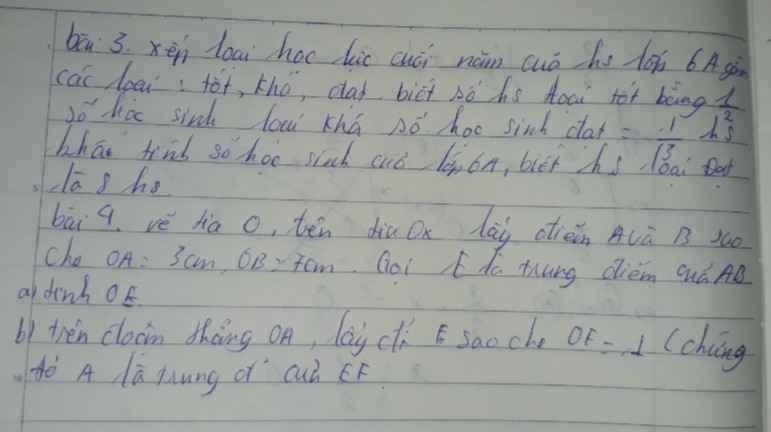 bài 3. xếp loại học lực cuối năm của hs lớp 6A gồm
các loại : tốt, khá, đạt. biết số hs loại tốt bằng 1/2
số học sinh loại khá số học sinh đạt = 1/3 hs
khá. tính số học sinh của lớp 6A, biết hs loại Đạt
là 8 hs
bài 4. vẽ tia O, trên tia Ox lấy điểm A và B sao
cho OA = 3cm, OB = 7cm. Gọi E là trung điểm của AB
a) tính OE.
b) trên đoạn thẳng OA, lấy đ' F sao cho OF = 1 (chứng
tỏ A là trung đ' của EF